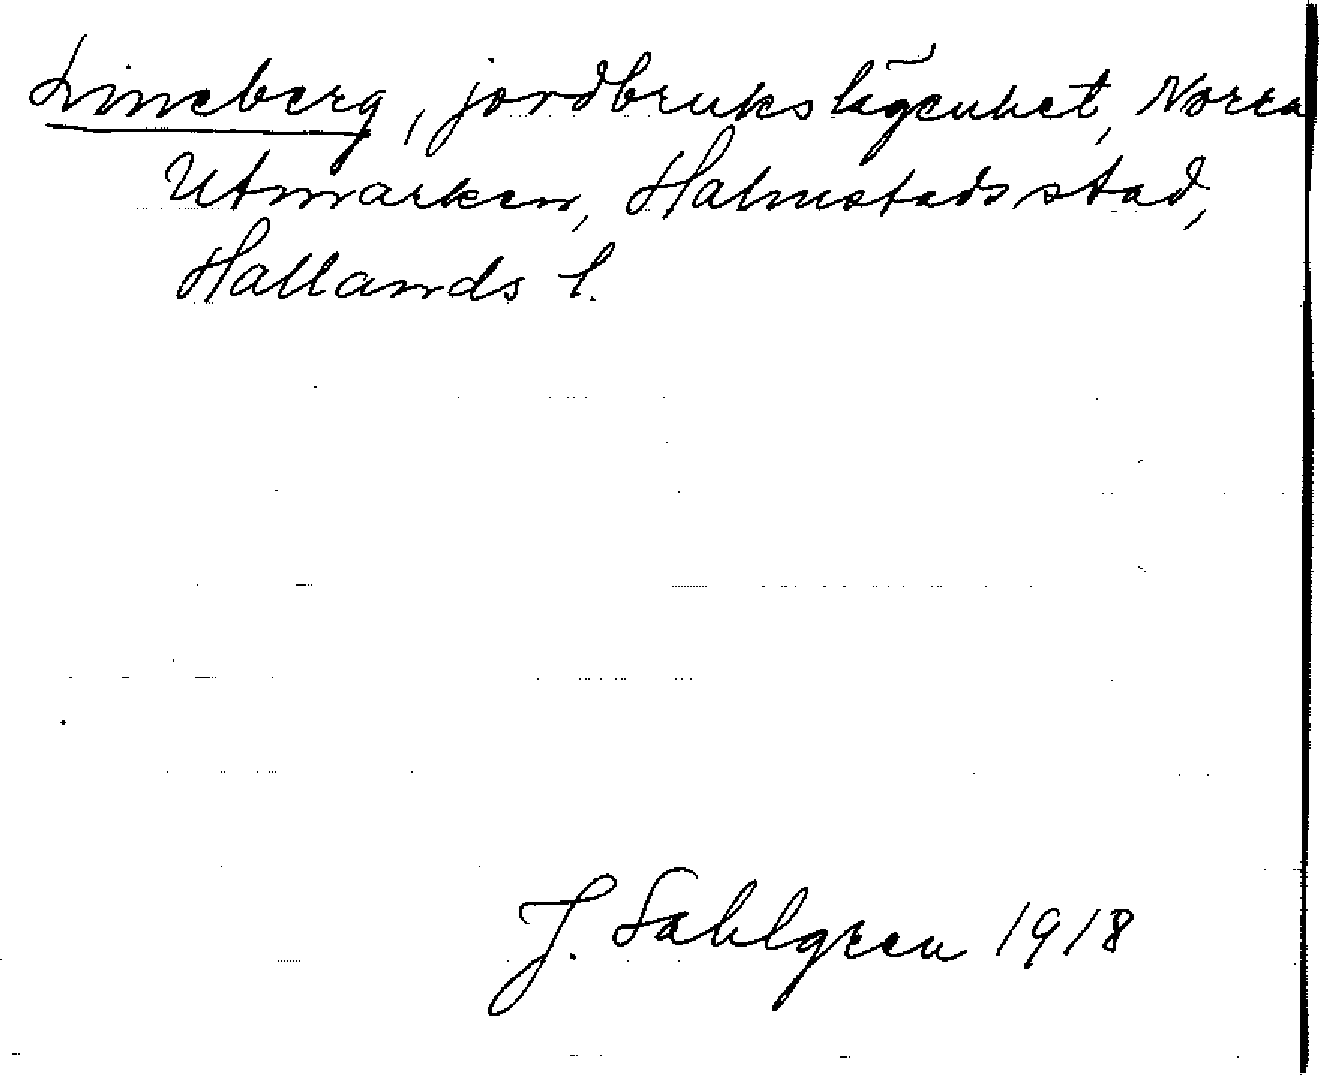 Lineberg, jordbrukslägenhet, Norra
Utmarken, Halmstads stad,
Hallands l.
J. Sahlgren 1918